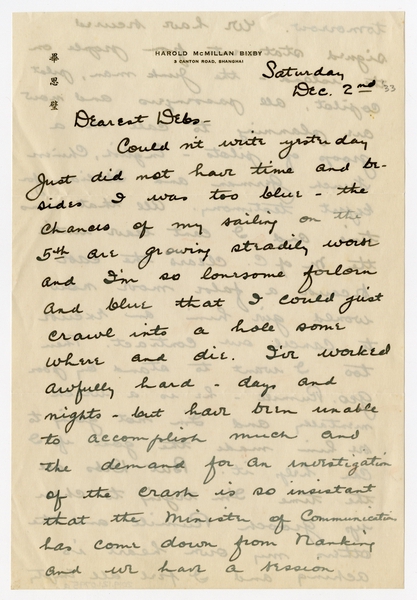 畢
思
璧
HAROLD McMILLAN BIXBY
3 CANTON ROAD, SHANGHAI
Saturday
Dec. 2nd 33
Dearest Debs -
Couldn't write yesterday
Just did not have time and be-
sides I was too blue - the
chances of my sailing on the
5th are growing steadily worse
and I'm so lonesome forlorn
and blue that I could just
crawl into a hole some
where and die. I've worked
awfully hard - days and
nights - but have been unable
to accomplish much and
the demand for an investigation
of the crash is so insistant
that the Minister of Communication
has come down from Nanking
and we have a session